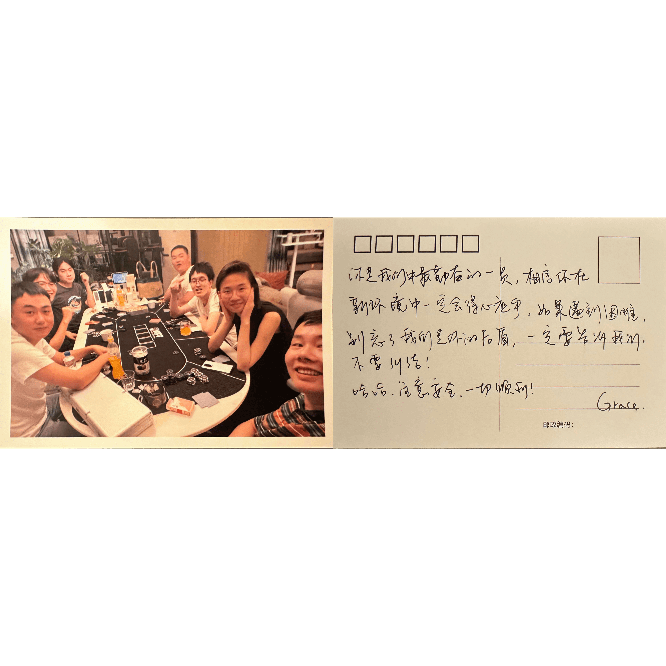 你是我们中最勇敢的一员，相信你在
新环境中一定会得心应手，如果遇到困难，
别忘了我们是你的后盾，一定要告诉我们，
不要纠结！
哈哈，注意安全，一切顺利！
Grace.
邮政编码：